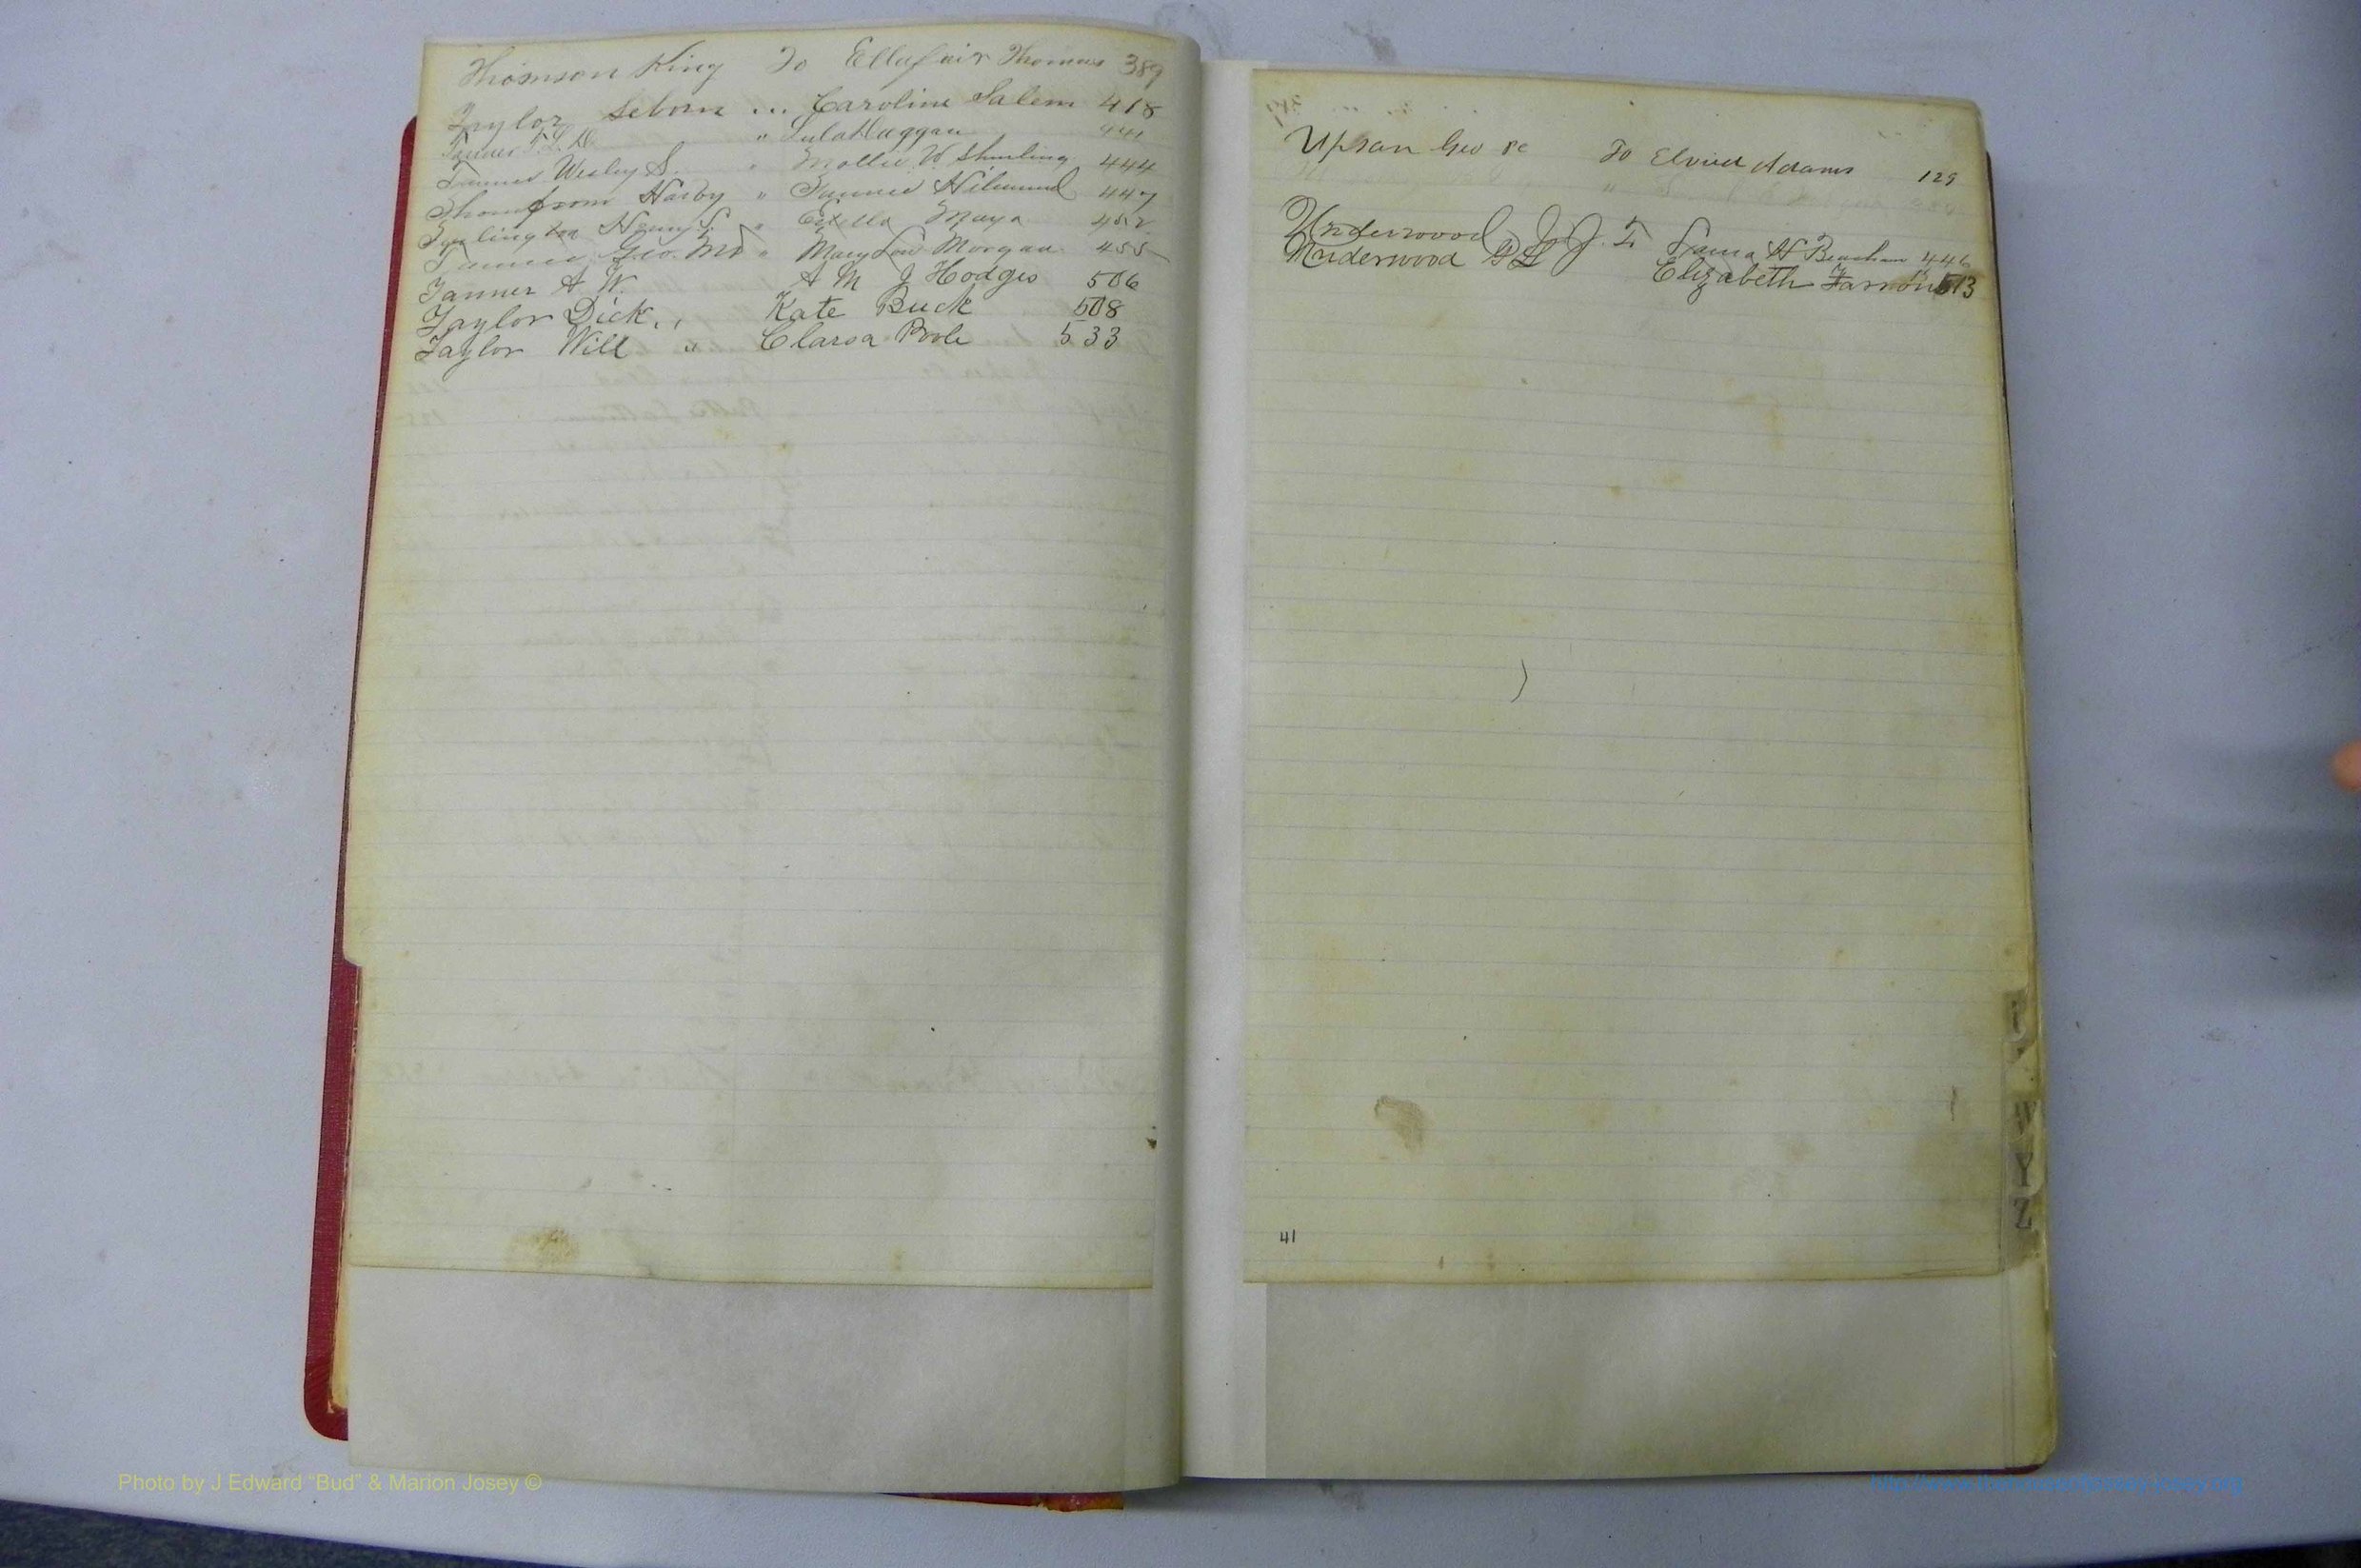 Thomson King To Ellafair Thomas 389
Taylor Seborn ... Caroline Salem 418
Tanner T. L. D. " Lula Duggan 441
Tanner Wesley S. " Mollie W. Shurling 444
Thompson Harby " Fannie 447
Tyrlington Henry L. " Estella Maya 452
Tanner Geo. Md " Mary Lou Morgan 455
Tanner A W. A M J Hodges 506
Taylor Dick " Kate Buck 508
Taylor Will " Clarsa Poole 533
Upson Geo To Elvied Adams 129
Underwood J. J. To Laura H Beacham 446
Underwood Elizabeth 513
41
U
W
Y
Z
Photo by J Edward “Bud” & Marion Josey ©